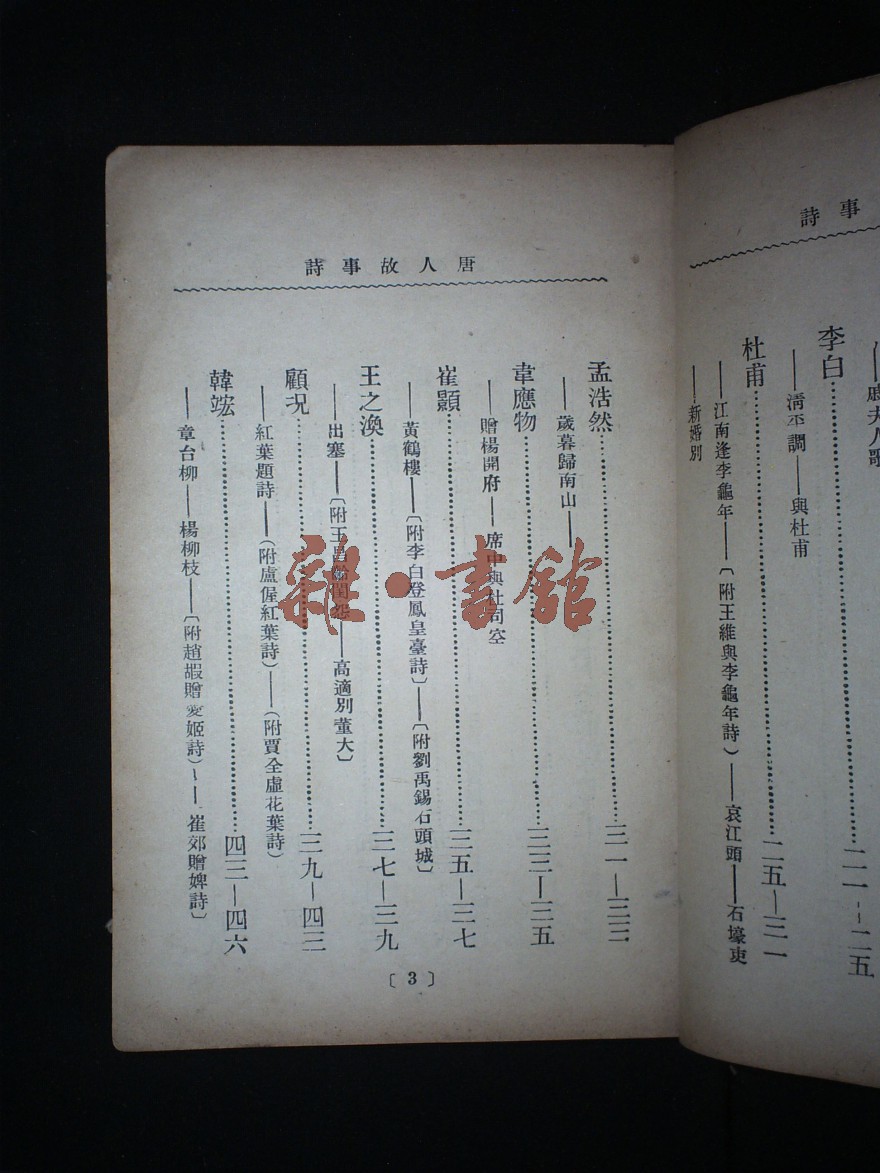 事詩
——戚夫人歌
李白…………二一—二五
——清平調——與杜甫
杜甫…………二五—三一
——江南逢李龜年——〔附王維與李龜年詩〕——哀江頭——石壕吏
——新婚別
唐人故事詩
孟浩然…………三一—三三
——歲暮歸南山——
韋應物…………三三—三五
——贈楊開府——席中與杜司空
崔顥…………三五—三七
——黃鶴樓——〔附李白登鳳皇臺詩〕——〔附劉禹錫石頭城〕
王之渙…………三七—三九
——出塞——〔附王昌齡閨怨——高適別董大〕
顧況…………三九—四三
——紅葉題詩——(附盧偓紅葉詩)——(附賈全虛花葉詩)
韓竤…………四三—四六
——章台柳——楊柳枝——〔附趙嘏贈愛姬詩〕——崔郊贈婢詩〕
〔3〕
雜·書館